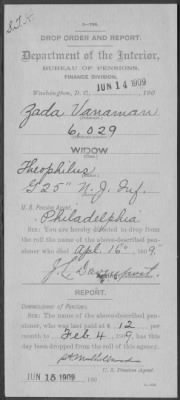 S.T.K.
3—798.
DROP ORDER AND REPORT.
Department of the Interior,
BUREAU OF PENSIONS,
FINANCE DIVISION.
JUN 14 1909
Washington, D. C., 190
Zada Vanaman
6,029
WIDOW
Theophilus
G 25" N.J. Inf.
U. S. Pension Agent,
Philadelphia
SIR: You are hereby directed to drop from
the roll the name of the above-described pen-
sioner who died Apl. 16", 1909.
J.L. Davenport.
REPORT.
Commissioner of Pensions.
SIR: The name of the above-described pen-
sioner, who was last paid at $ 12 per
month to Feb 4, 1909, has this
day been dropped from the roll of this agency.
U. S. Pension Agent.
JUN 15 1909 190